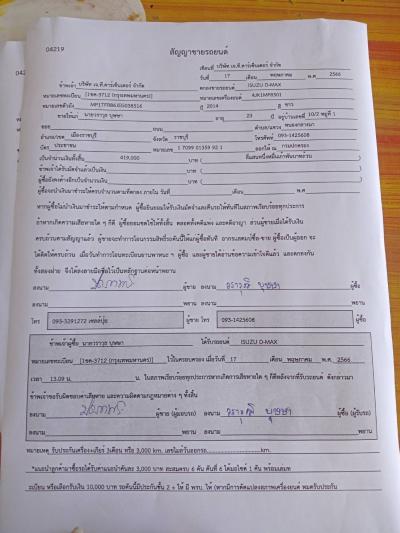 04219
สัญญาขายรถยนต์
เขียนที่ บริษัท เจ.ที.คาร์เซ็นเตอร์ จำกัด
วันที่ 17 เดือน พฤษภาคม พ.ศ 2566
ข้าพเจ้า บริษัท เจ.ที.คาร์เซ็นเตอร์ จำกัด ตกลงขายรถยนต์ ISUZU D-MAX
หมายเลขทะเบียน [1ขค-3712 (กรุงเทพมหานคร)] หมายเลขเครื่องยนต์ 4JK1MP8501
หมายเลขตัวถัง ปี 2014 สี ขาว
ขายให้แก่ นายวราวุธ บุษษา อายุ 23 ปี อยู่บ้านเลขที่ 10/2 หมู่ที่ 1
ซอย ถนน ตำบล/แขวง หนองกลางนา
อำเภอ/เขต เมืองราชบุรี จังหวัด ราชบุรี โทรศัพท์ 093-1425608
บัตร ประชาชน หมายเลข 1 7099 01359 92 1 ออกให้ ณ กรมปกครอง
เป็นจำนวนเงินทั้งสิ้น 419,000 บาท ( สี่แสนหนึ่งหมื่นเก้าพันบาทถ้วน )
ผู้ซื้อได้วางมัดจำแล้วเป็นเงิน บาท ( )
ผู้ซื้อยังคงค้างอีกเป็นจำนวนเงิน บาท ( )
ผู้ซื้อจะนำเงินมาชำระให้ครบจำนวนตามที่ตกลง ภายใน วันที่ เดือน พ.ศ
หากผู้ซื้อไม่นำเงินมาชำระให้ครบตามกำหนด ผู้ซื้อยินยอมให้ริบเงินมัดจำและคืนรถให้ทันทีในสภาพเรียบร้อยทุกประการ
ถ้าหากเกิดความเสียหายใด ๆ ก็ดี ผู้ซื้อยอมชดใช้ให้ทั้งสิ้น ตลอดทั้งคดีแพ่ง และคดีอาญา ส่วนผู้ขายเมื่อได้รับเงิน
ครบถ้วนตามสัญญาแล้ว ผู้ขายจะทำการโอนกรรมสิทธิ์รถคันนี้ให้แก่ผู้ซื้อทันที
ทั้งสองฝ่าย จึงได้ลงลายมือชื่อไว้เป็นหลักฐานต่อหน้าพยาน
ลงนาม ผู้ขาย ลงนาม วราวุธ บุษษา ผู้ซื้อ
ลงนาม พยาน ลงนาม พยาน
โทร 095-3291272 ผู้ขาย โทร 093-1425608 ผู้ซื้อ
ข้าพเจ้าผู้ซื้อ นายวราวุธ บุษษา ได้รับรถยนต์ ISUZU D-MAX
หมายเลขทะเบียน [1ขค-3712 (กรุงเทพมหานคร)] ไว้ในครอบครอง เมื่อวันที่ 17 เดือน พฤษภาคม พ.ศ. 2566
เวลา 13.09 น. น. ในสภาพเรียบร้อยทุกประการหากเกิดการเสียหายใด ๆ ก็ดีหลังจากที่รับรถยนต์ ดังกล่าวมา
ข้าพเจ้าขอรับผิดชอบความเสียหาย และความผิดตามกฎหมายต่าง ๆ ทั้งสิ้น
ลงนาม ผู้ขาย (ผู้มอบรถ) ลงนาม วราวุธ บุษษา ผู้ซื้อ (ผู้รับรถ)
ลงนาม พยาน ลงนาม พยาน
หมายเหตุ รับประกันเครื่อง+เกียร์ 3เดือน หรือ 3,000 km. เลขไมล์วันออกรถ km.
*แนะนำลูกค้ามาซื้อรถได้รับค่าแนะนำคันละ 3,000 บาท สะสมครบ 6 คัน คันที่ 6 ได้มอไซค์ 1 คัน พร้อมเลมท
ะเบียน หรือเลือกรับเงิน 10,000 บาท รถคันนี้มีประกันชั้น 2 + ให้ มี พรบ. ให้ (หากมีการดัดแปลงสภาพเครื่องยนต์ หมดรับประกัน